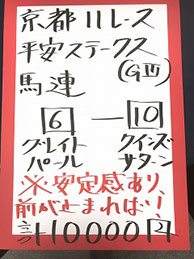 京都11レース
平安ステークス
(GⅢ)
馬連
6 — 10
グレイト クインズ
パール サターン
※安定感あり、
前が止まれば!
10000円